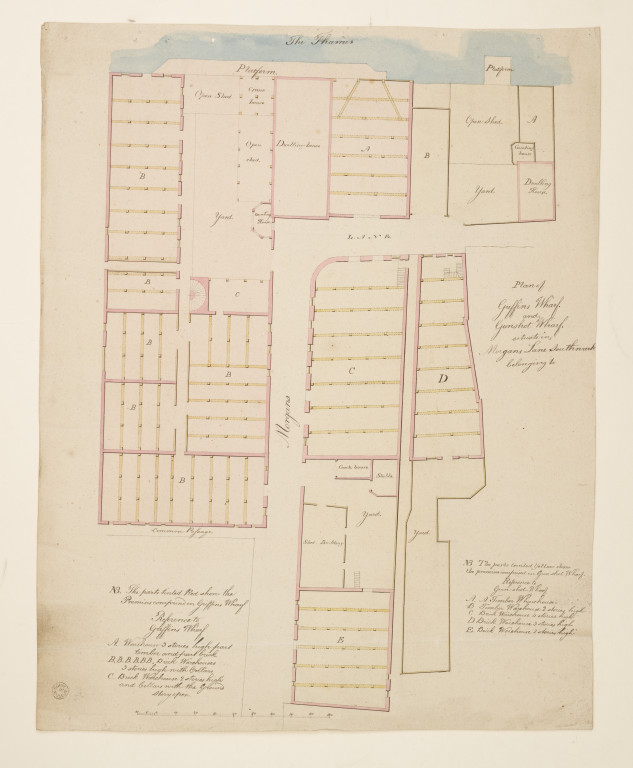 The Thames
Platform
Platform
Open Shed
Crane house
Open shed
Dwelling house
A
B
Open Shed
A
Counting house
Dwelling House
B
Yard
Counting House
Yard
B
C
B
B
B
B
Morgans
Lane
C
D
Plan of
Griffins Wharf
and
Gunshot Wharf
situate in
Morgans Lane Southwark
belonging to
Coach house
Stable
Yard
Yard
E
Common Passage
NB. The parts tinted Red shew the
Premises comprised in Griffins Wharf
Reference to
Griffins Wharf
A. Warehouse 3 stories high part
timber and part brick
B.B.B.B.B. Brick Warehouses
3 stories high with Cellars
C. Brick Warehouse 2 stories high
and Cellars with the Ground
Story open
NB. The parts tinted Yellow shew
the premises comprised in Gun shot Wharf
Reference to
Gun shot Wharf
A. A Timber Warehouse
B. Timber Warehouse 2 stories high
C. Brick Warehouse 3 stories high
D. Brick Warehouse 3 stories high
E. Brick Warehouse 3 stories high